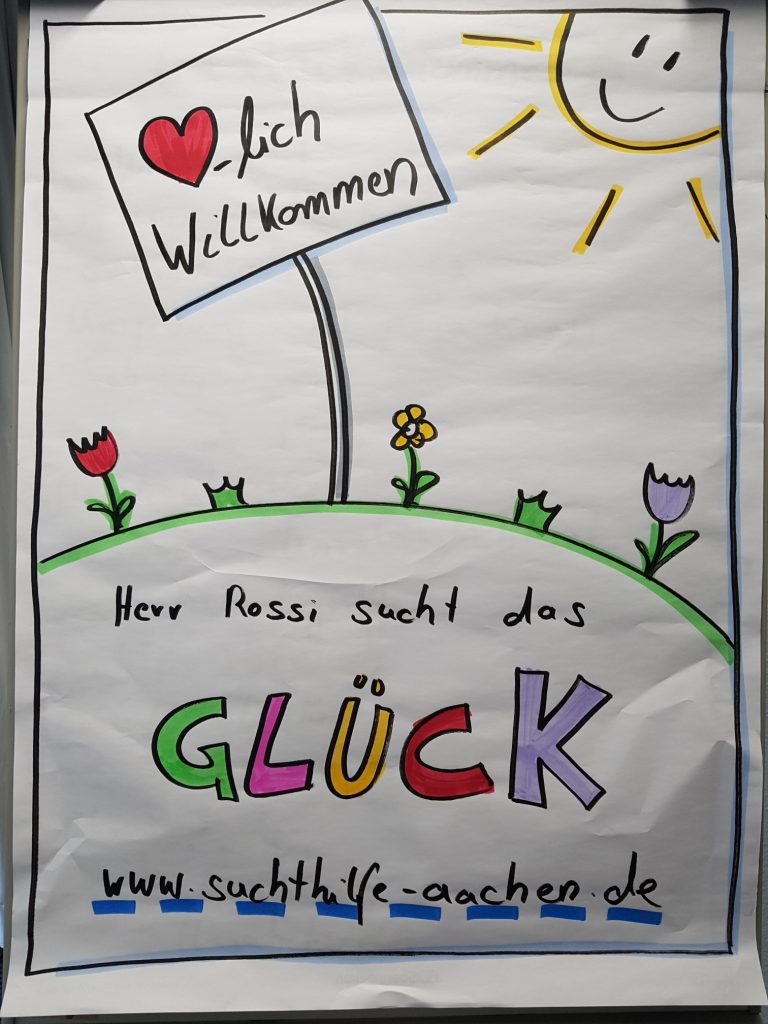 ❤-lich
Willkommen
Herr Rossi sucht das
GLÜCK
www.suchthilfe-aachen.de